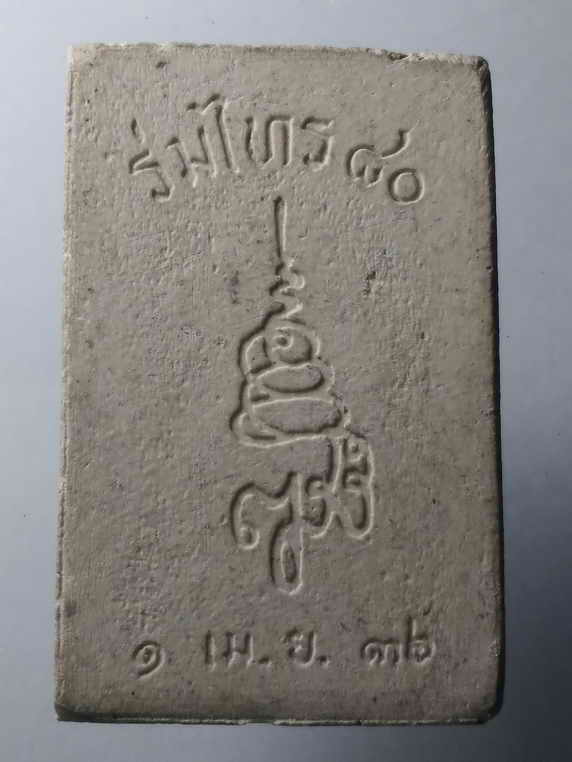 ร่มไทร ๘๐
๑ เม.ย. ๓๖